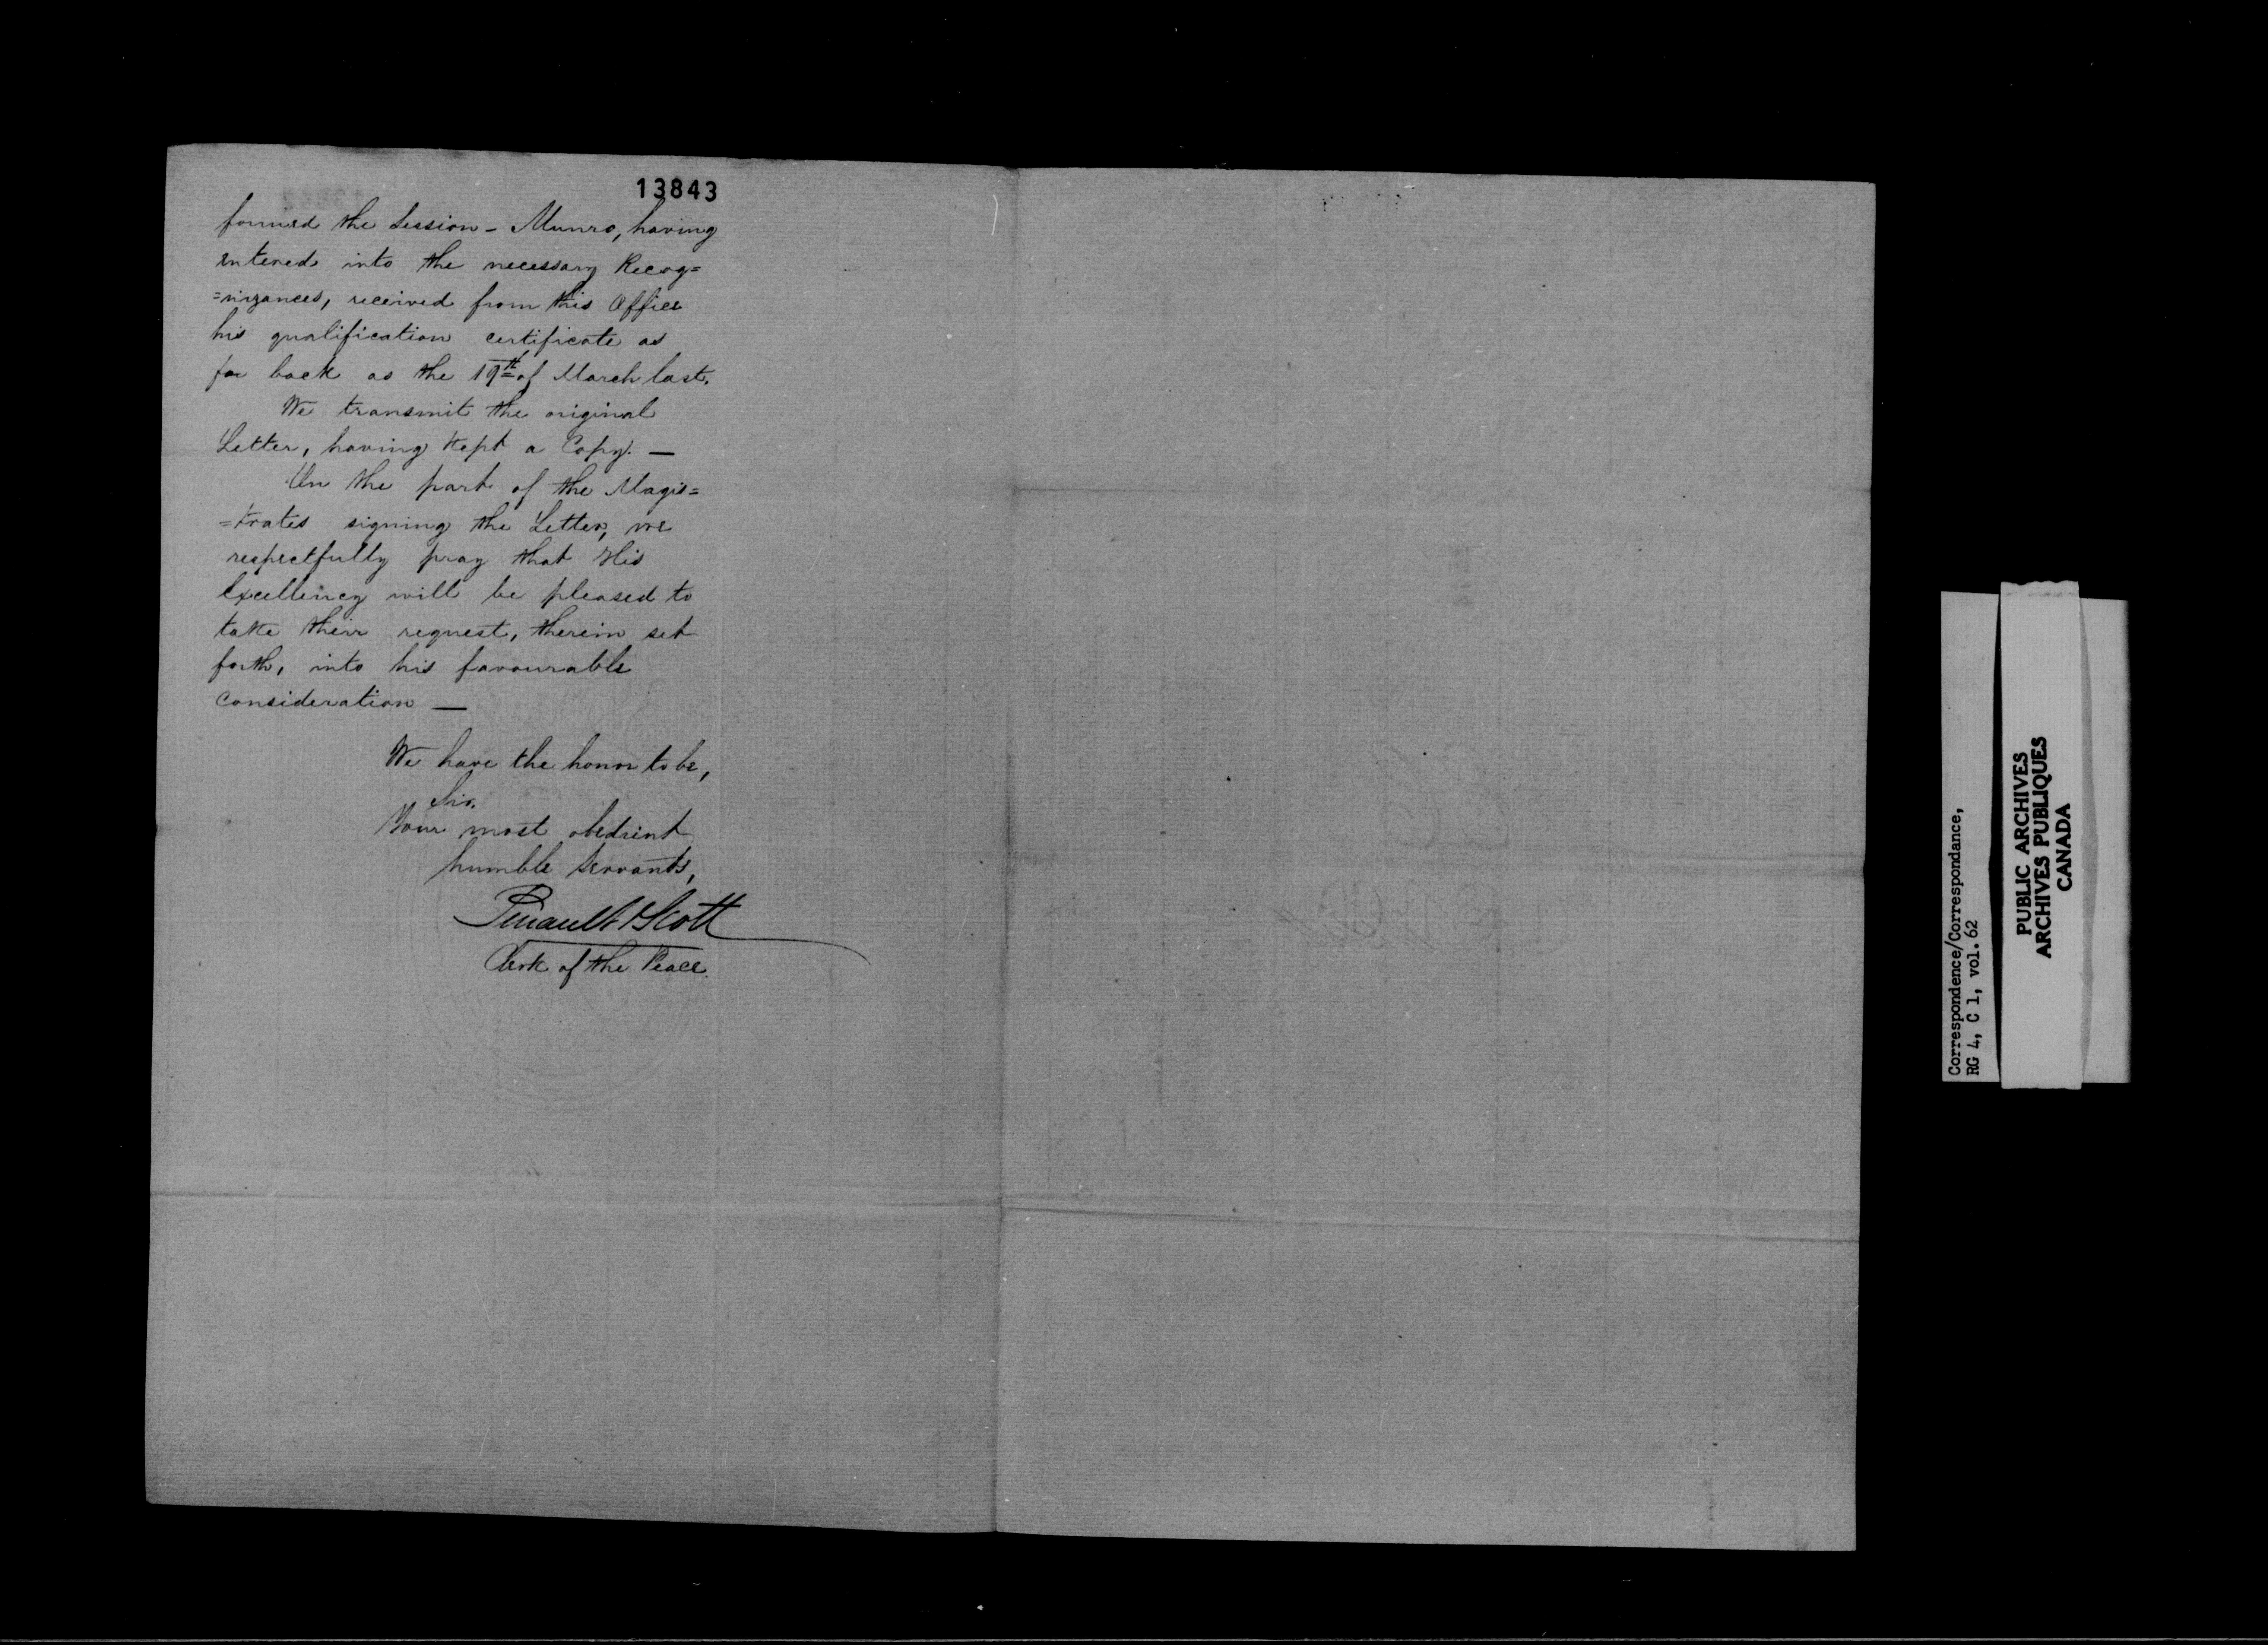 13843
formed the Session - Munro, having
entered into the necessary Recog=
=nizances, received from this Office
his qualification certificate as
far back as the 19th of March last.
We transmit the original
Letter, having kept a Copy. —
On the part of the Magis=
=trates signing the Letter, we
respectfully pray that His
Excellency will be pleased to
take their request, therein set
forth, into his favourable
consideration —
We have the honor to be,
Sir,
Your most obedient
humble servants,
Perrault & Scott
Clerk of the Peace.
Correspondence/Correspondance,
RG 4, C 1, vol. 62
PUBLIC ARCHIVES
ARCHIVES PUBLIQUES
CANADA